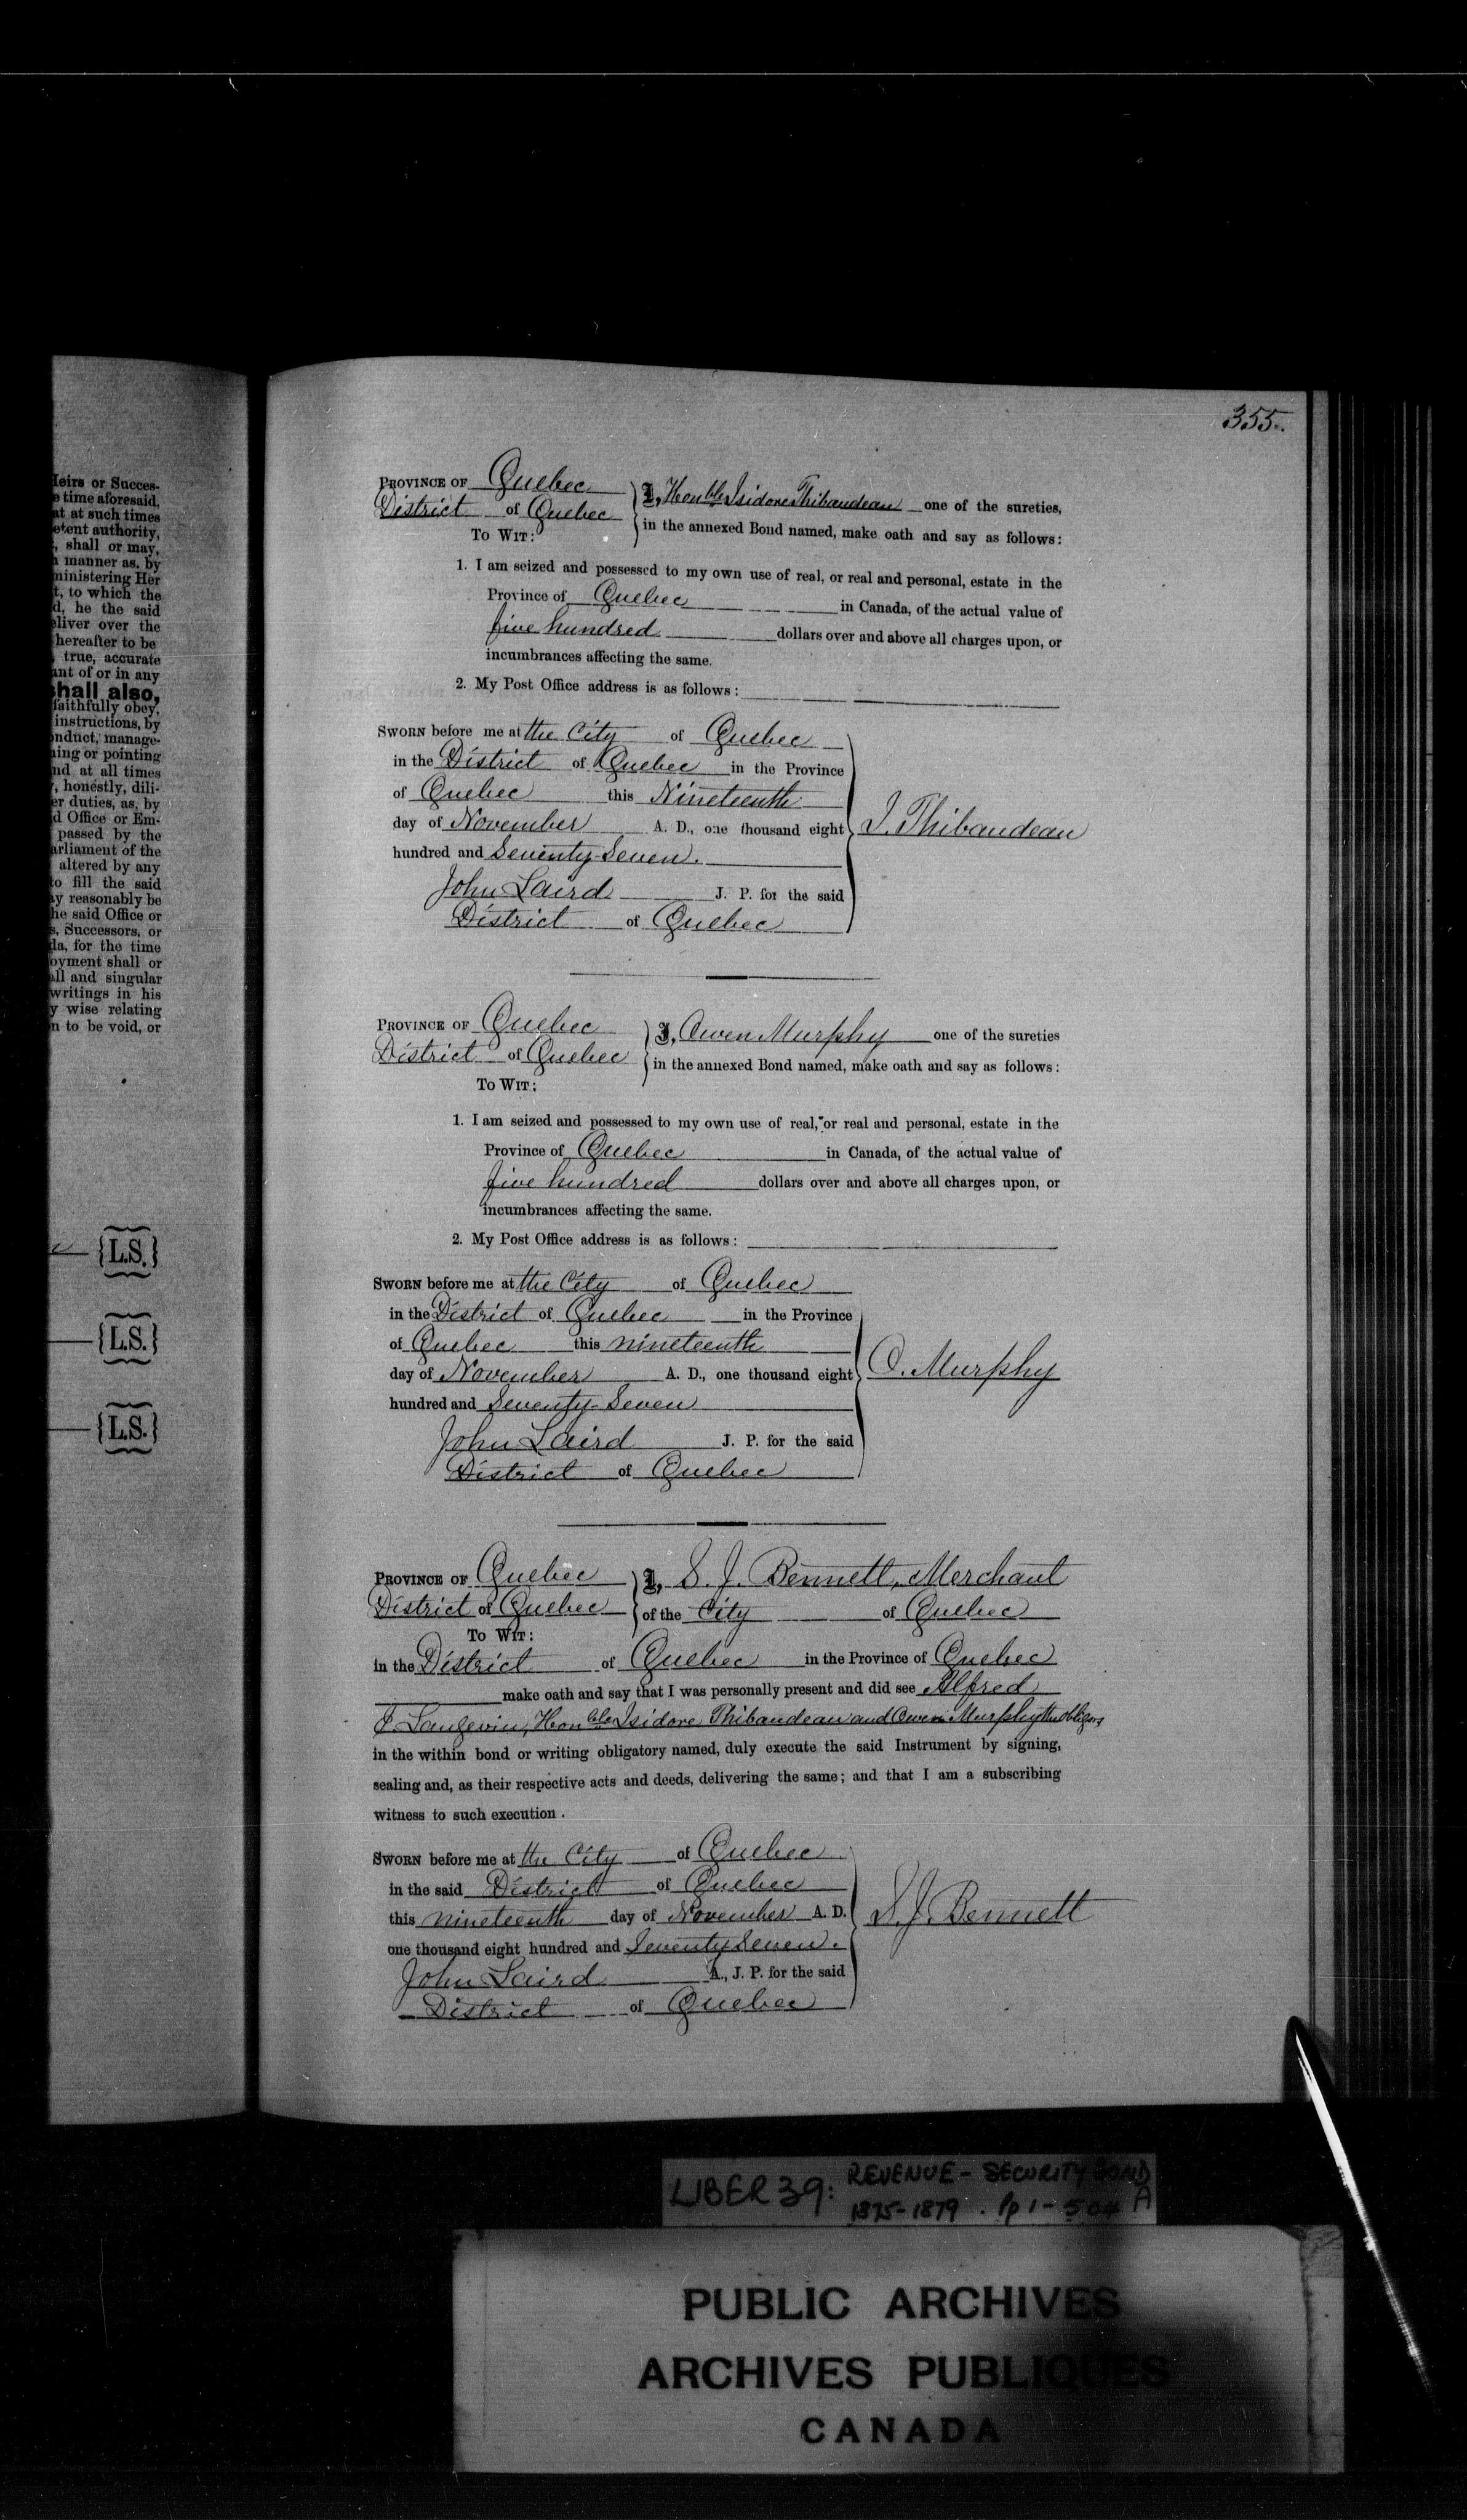 355.
Heirs or Succes-
e time aforesaid,
at at such times
etent authority,
, shall or may,
n manner as, by
ministering Her
t, to which the
d, he the said
eliver over the
hereafter to be
, true, accurate
ant of or in any
shall also,
faithfully obey,
instructions, by
onduct, manage-
ning or pointing
nd at all times
y, honestly, dili-
er duties, as, by
d Office or Em-
passed by the
arliament of the
altered by any
to fill the said
ay reasonably be
he said Office or
s, Successors, or
da, for the time
oyment shall or
all and singular
writings in his
y wise relating
n to be void, or
{L.S.}
{L.S.}
{L.S.}
PROVINCE OF Quebec } I, Honble Isidore Thibaudeau one of the sureties,
District of Quebec } in the annexed Bond named, make oath and say as follows:
TO WIT:
1. I am seized and possessed to my own use of real, or real and personal, estate in the
Province of Quebec in Canada, of the actual value of
five hundred dollars over and above all charges upon, or
incumbrances affecting the same.
2. My Post Office address is as follows:
SWORN before me at the City of Quebec
in the District of Quebec in the Province
of Quebec this Nineteenth
day of November A. D., one thousand eight
hundred and Seventy-Seven.
I. Thibaudeau
John Laird J. P. for the said
District of Quebec
PROVINCE OF Quebec } I, Owen Murphy one of the sureties
District of Quebec } in the annexed Bond named, make oath and say as follows:
TO WIT:
1. I am seized and possessed to my own use of real, or real and personal, estate in the
Province of Quebec in Canada, of the actual value of
five hundred dollars over and above all charges upon, or
incumbrances affecting the same.
2. My Post Office address is as follows:
SWORN before me at the City of Quebec
in the District of Quebec in the Province
of Quebec this nineteenth
day of November A. D., one thousand eight
hundred and Seventy-Seven
O. Murphy
John Laird J. P. for the said
District of Quebec
PROVINCE OF Quebec } I, S. J. Bennett, Merchant
District of Quebec } of the City of Quebec
TO WIT:
in the District of Quebec in the Province of Quebec
make oath and say that I was personally present and did see Alfred
F. Langevin, Honble Isidore Thibaudeau and Owen Murphy the obligors
in the within bond or writing obligatory named, duly execute the said Instrument by signing,
sealing and, as their respective acts and deeds, delivering the same; and that I am a subscribing
witness to such execution.
SWORN before me at the City of Quebec
in the said District of Quebec
this nineteenth day of November A. D.
one thousand eight hundred and Seventy Seven.
S. J. Bennett
John Laird A., J. P. for the said
District of Quebec
LIBER 39: REVENUE - SECURITY BOND
1875-1879. Pp 1-504 A
PUBLIC ARCHIVES
ARCHIVES PUBLIQUES
CANADA